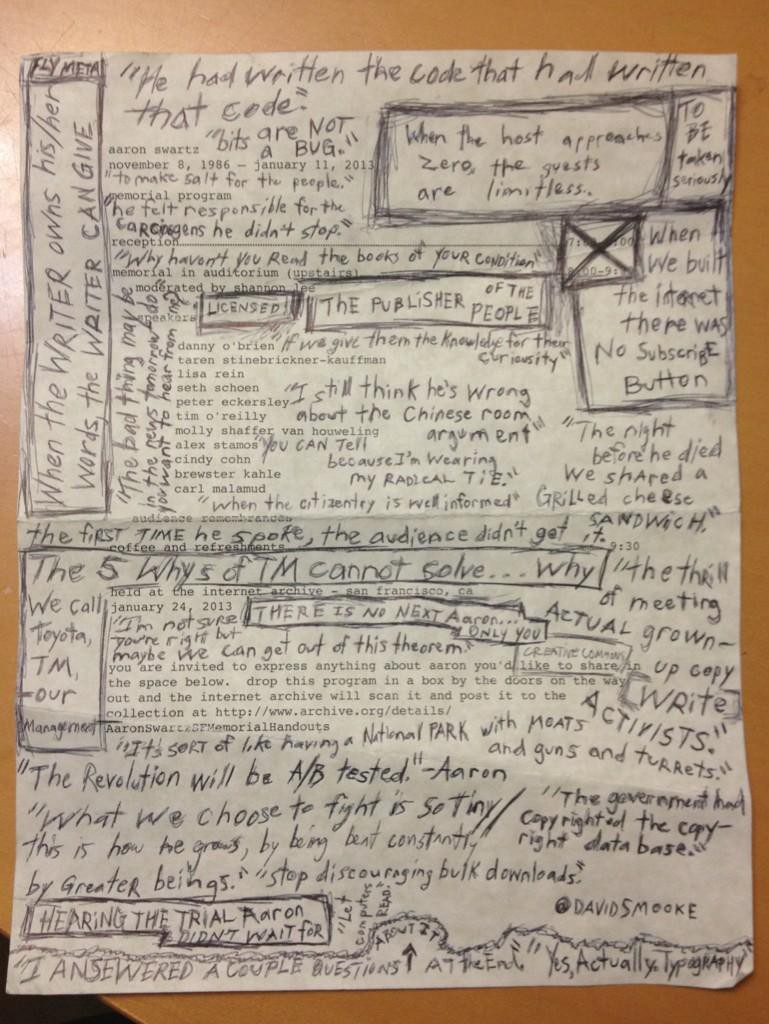 FLY META
"He had written the code that had written
that code."
"bits are NOT
a BUG."
When the host approaches
zero, the guests
are limitless.
TO
BE
taken
seriously
When the WRITER owns his/her
words, the WRITER CAN GIVE
aaron swartz
november 8, 1986 – january 11, 2013
"to make salt for the people."
memorial program
he felt responsible for the
carcinogens he didn't stop."
reception
"Why haven't you Read the books of YOUR CONDITION"
memorial in auditorium (upstairs)
moderated by shannon lee
speakers
LICENSED
THE PUBLISHER OF THE
PEOPLE
When
We built
the internet
there was
No Subscribe
Button
"The bad thing may be
in the news tomorrow, do
you want to hear from me?"
danny o'brien
"if we give them the knowledge for their
curiousity"
taren stinebrickner-kauffman
lisa rein
seth schoen
peter eckersley
tim o'reilly
molly shaffer van houweling
alex stamos
cindy cohn
brewster kahle
carl malamud
"I still think he's wrong
about the Chinese room
argument"
"YOU CAN Tell
because I'm wearing
my RADICAL TIE."
"when the citizentry is well informed"
"The night
before he died
We shared a
Grilled cheese
SANDWICH."
audience remembrances
the FIRST TIME he spoke, the audience didn't get it.
coffee and refreshments
9:30
The 5 Whys of TM cannot solve... why
We call
Toyota,
TM,
our
Management
held at the internet archive – san francisco, ca
january 24, 2013
THERE IS NO NEXT Aaron...
ONLY YOU
"I'm not sure
you're right but
maybe we can get out of this theorem."
CREATIVE COMMONS
"the thrill
of meeting
ACTUAL grown-
up copy
WRITE
ACTIVISTS."
you are invited to express anything about aaron you'd like to share in
the space below. drop this program in a box by the doors on the way
out and the internet archive will scan it and post it to the
collection at http://www.archive.org/details/
AaronSwartzSFMemorialHandouts
"It's sort of like having a National PARK with MOATS
and guns and turrets."
"The Revolution will be A/B tested." -Aaron
"What we choose to fight is so tiny/
this is how he grows, by being beat constantly
by Greater beings."
"The government had
copyrighted the copy-
right database."
"stop discouraging bulk downloads."
HEARING THE TRIAL Aaron
DIDN'T WAIT FOR
"Let
computers
READ."
@DAVIDSMOOKE
ABOUT IT
"I ANSEWERED A COUPLE QUESTIONS ↑ AT the End."
"Yes, Actually. Typography"